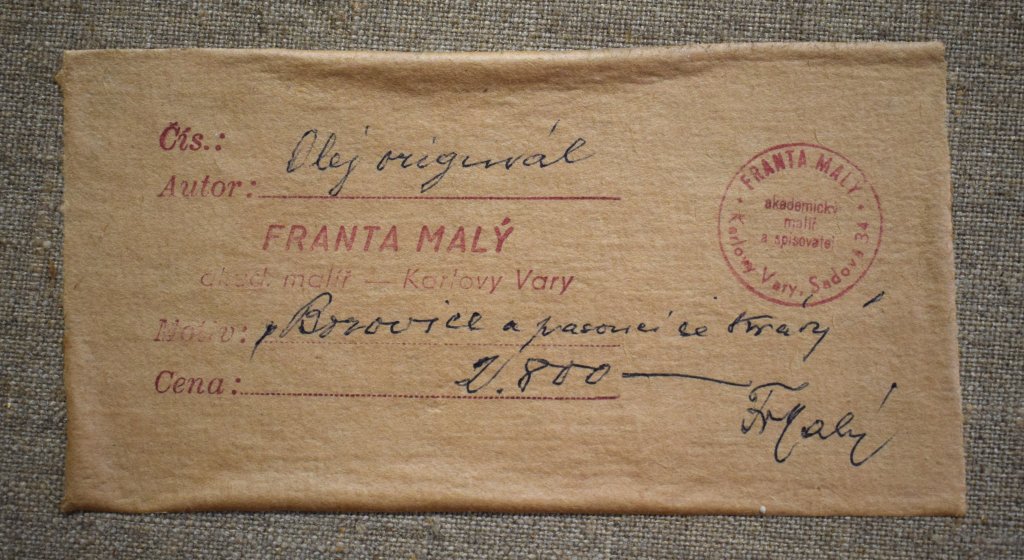 Čís.:
Olej originál
Autor:
FRANTA MALÝ
akad. malíř — Karlovy Vary
Motiv: „Borovice a pasoucí se krávy"
Cena: 2.800 —
Fr Malý
FRANTA MALÝ
akademický
malíř
a spisovatel
Karlovy Vary, Sadová 34